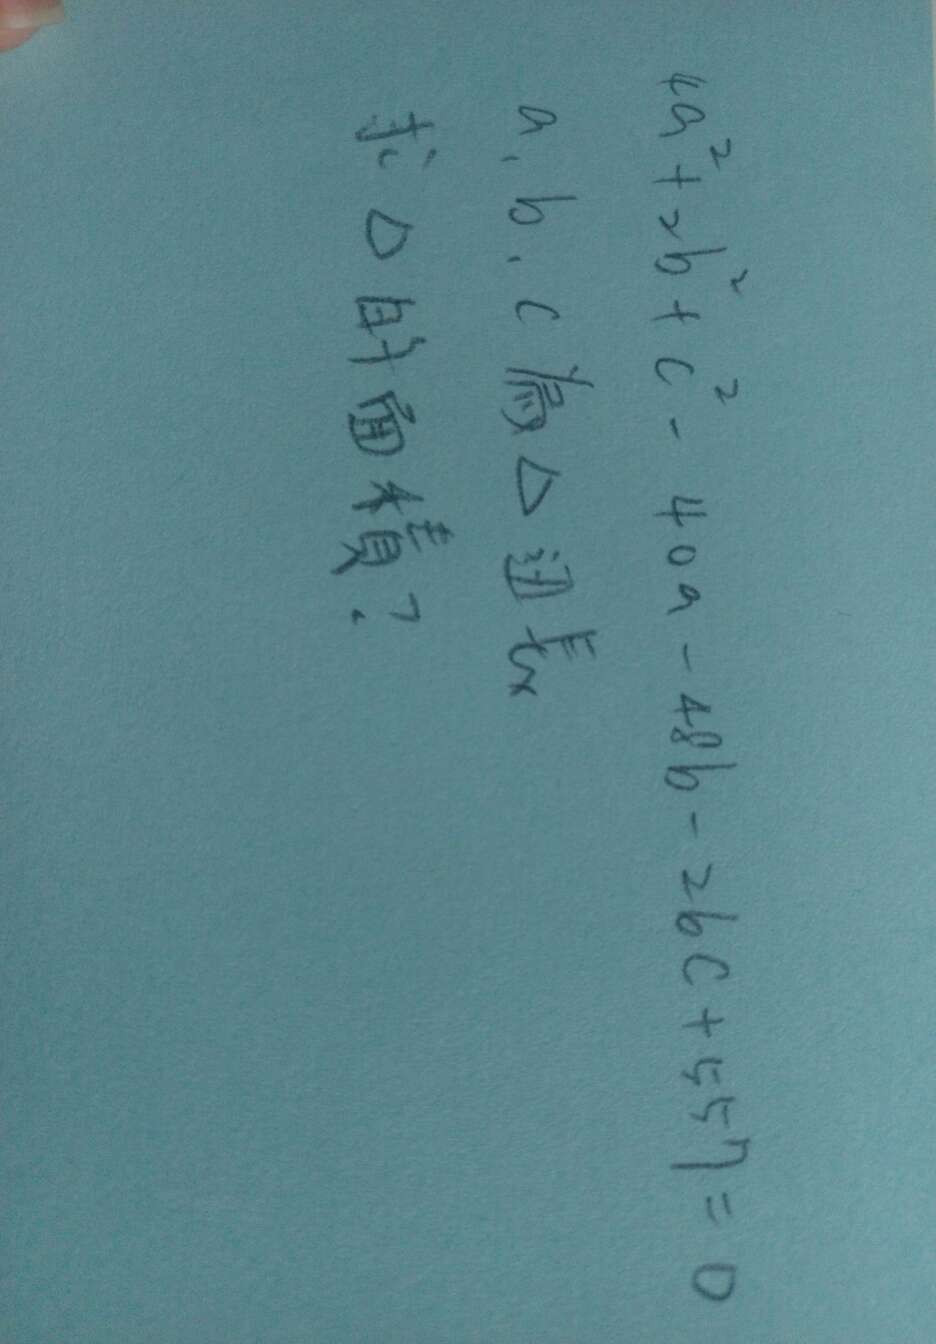 4a²+2b²+c²-40a-48b-2bc+557=0
a、b、c為△边長
求△的面積?